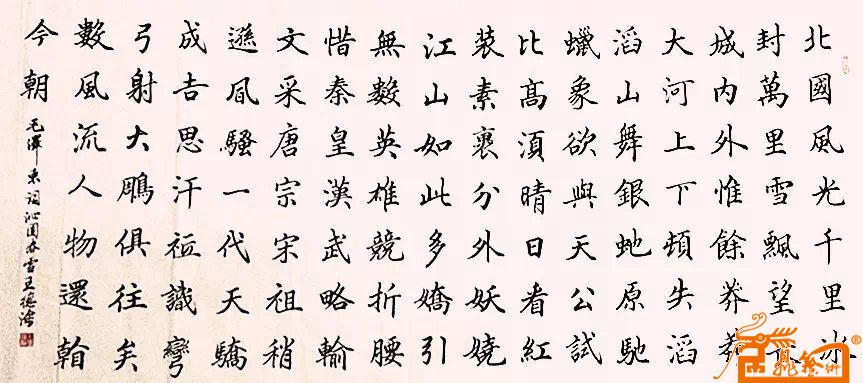 北國風光千里冰
封萬里雪飄望
城内外惟餘莽莽
大河上下頓失滔
滔山舞銀虵原馳
蠟象欲與天公試
比髙須晴日看紅
装素裹分外妖嬈
江山如此多嬌引
無數英雄競折腰
惜秦皇漢武略輸
文采唐宗宋祖稍
遜風騷一代天驕
成吉思汗祗識彎
弓射大鵰俱往矣
數風流人物還翰
今朝
毛澤東詞沁園春雪王德